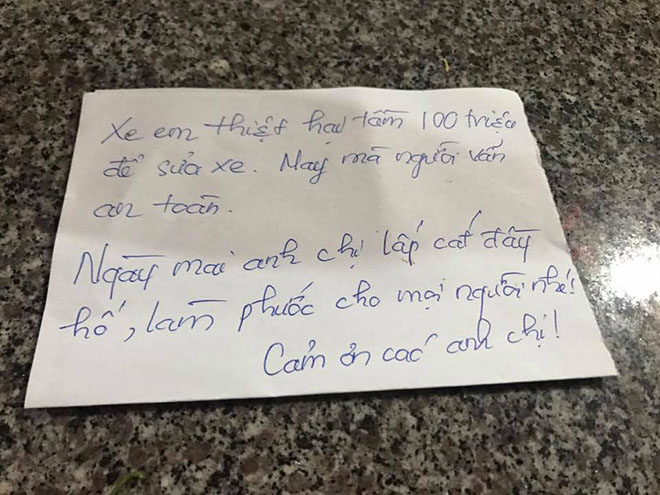 Xe em thiệt hại tầm 100 triệu
để sửa xe. May mà người vẫn
an toàn.
Ngày mai anh chị lấp cát đầy
hố, làm phước cho mọi người nhé!
Cảm ơn các anh chị!